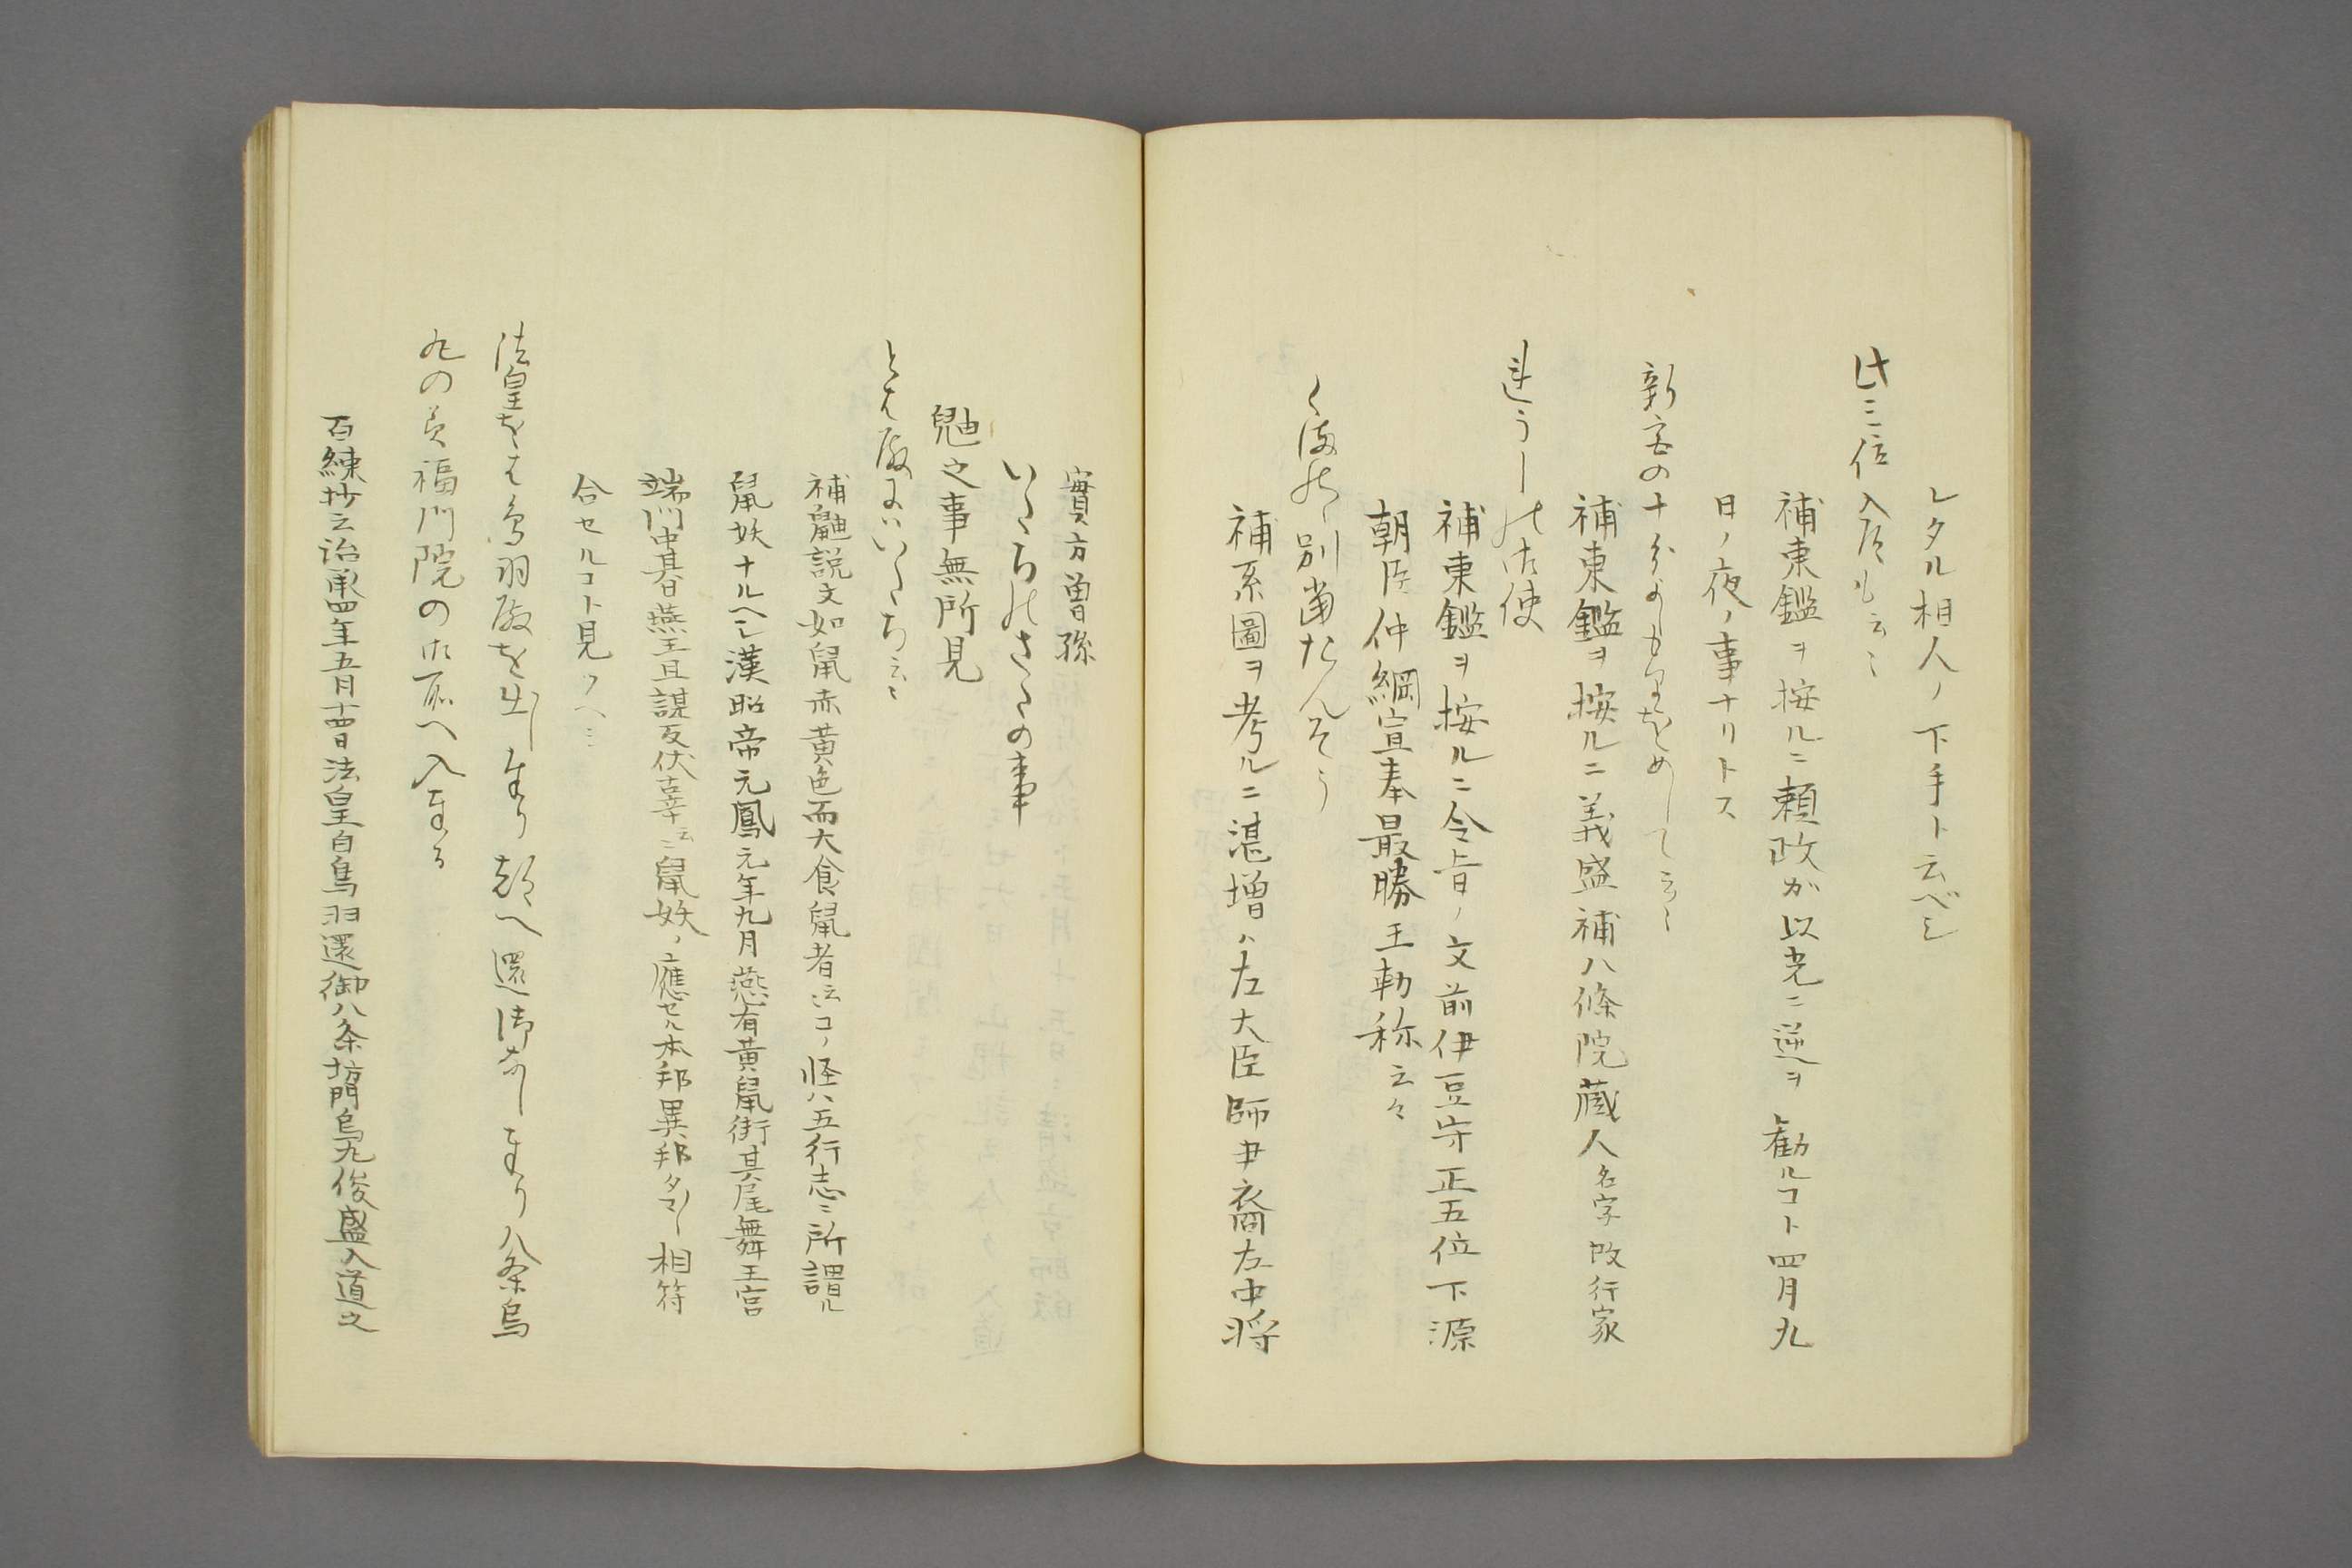 レタル相人ノ下手ト云ベシ
此三位入道も云々
補東鑑ヲ按ルニ頼政ガ以光ニ逆ヲ勧ルコト四月九
日ノ夜ノ事ナリトス
新宮の十郎よしもりをめして云々
補東鑑ヲ按ルニ義盛補八條院蔵人名字改行家
れうしの御使
補東鑑ヲ按ルニ令旨ノ文前伊豆守正五位下源
朝臣仲綱宣奉最勝王勅称云々
くまのゝ別當たんそう
補系圖ヲ考ルニ湛増ハ左大臣師尹裔左中将
實方曽孫
いたちのさたの事
鼬之事無所見
とば殿にいいたち云々
補鼬説文如鼠赤黄色而大食鼠者云コノ怪ハ五行志ニ所謂ル
鼠妖ナルヘシ漢昭帝元鳳元年九月燕有黄鼠銜其尾舞王宮
端門中暮日燕王旦謀反伏辜云々鼠妖ノ應セル本邦異邦多シ相符
合セルコト見ツヘシ
法皇をば鳥羽殿を出し奉り都へ還御なし奉り八条烏
丸の美福門院の御所へ入奉る
百練抄云治承四年五月十四日法皇自鳥羽還御八条坊門烏丸俊盛入道之